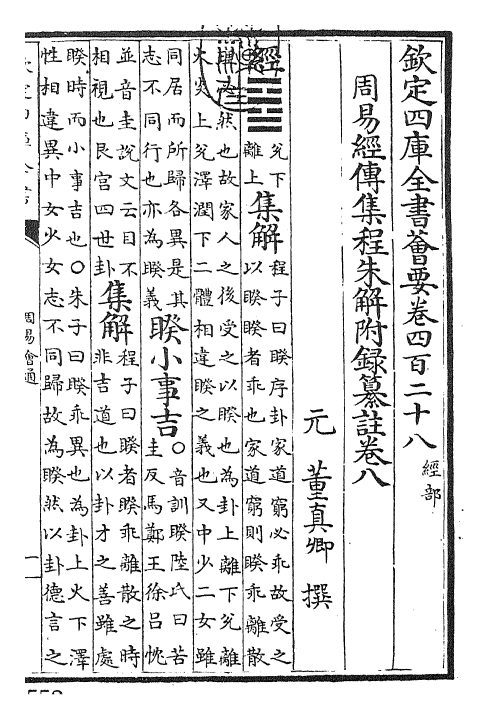 欽定四庫全書薈要卷四百二十八 經部
周易經傳集程朱解附録纂註卷八
元 董真卿 撰
經 兌下
離上
集解
程子曰睽序卦家道窮必乖故受之
以睽睽者乖也家道窮則睽乖離散
必然也故家人之後受之以睽也為卦上離下兌離
火炎上兌澤潤下二體相違睽之義也又中少二女雖
同居而所歸各異是其
志不同行也亦為睽義
睽小事吉
○音訓睽陸氏曰苦
圭反馬鄭王徐呂忱
並音圭說文云目不
相視也艮宮四世卦
集解
程子曰睽者睽乖離散之時
非吉道也以卦才之善雖處
睽時而小事吉也○朱子曰睽乖異也為卦上火下澤
性相違異中女少女志不同歸故為睽然以卦德言之
周易會通
一